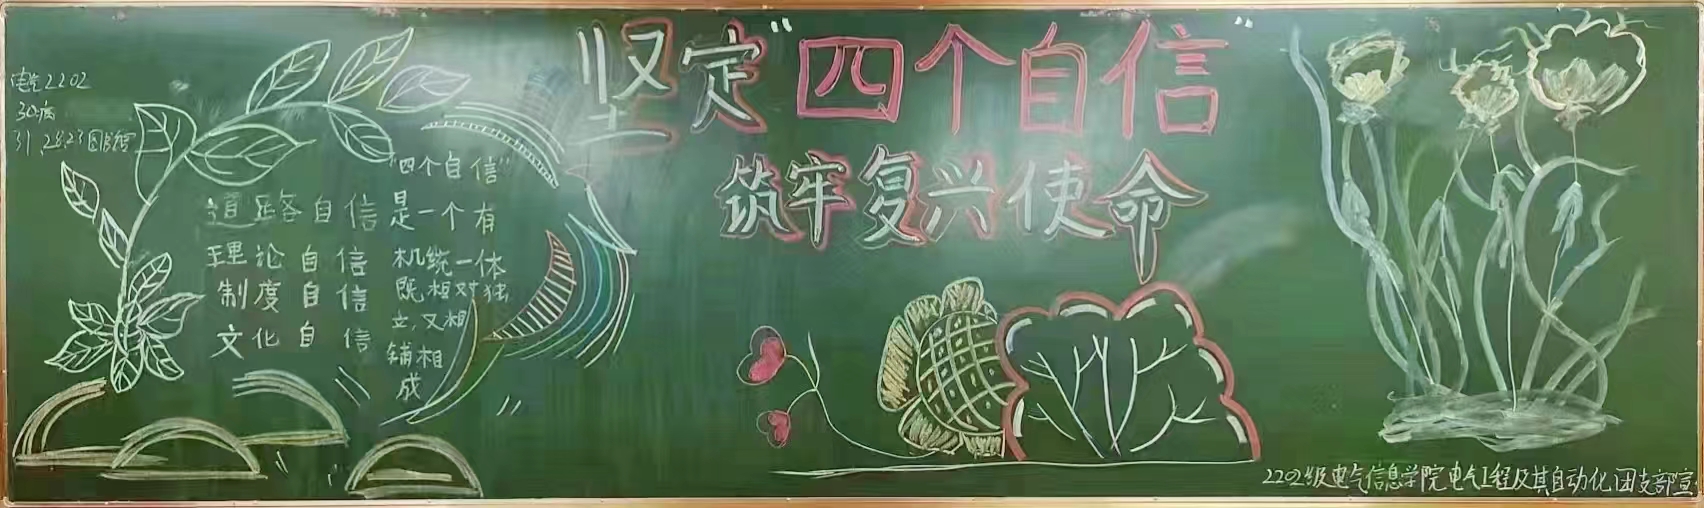 坚定“四个自信”
筑牢复兴使命
电气2202
31、28、23
道路自信
理论自信
制度自信
文化自信
“四个自信”
是一个有
机统一体
既相对独
立，又相
辅相
成
2202级电气信息学院电气工程及其自动化团支部宣